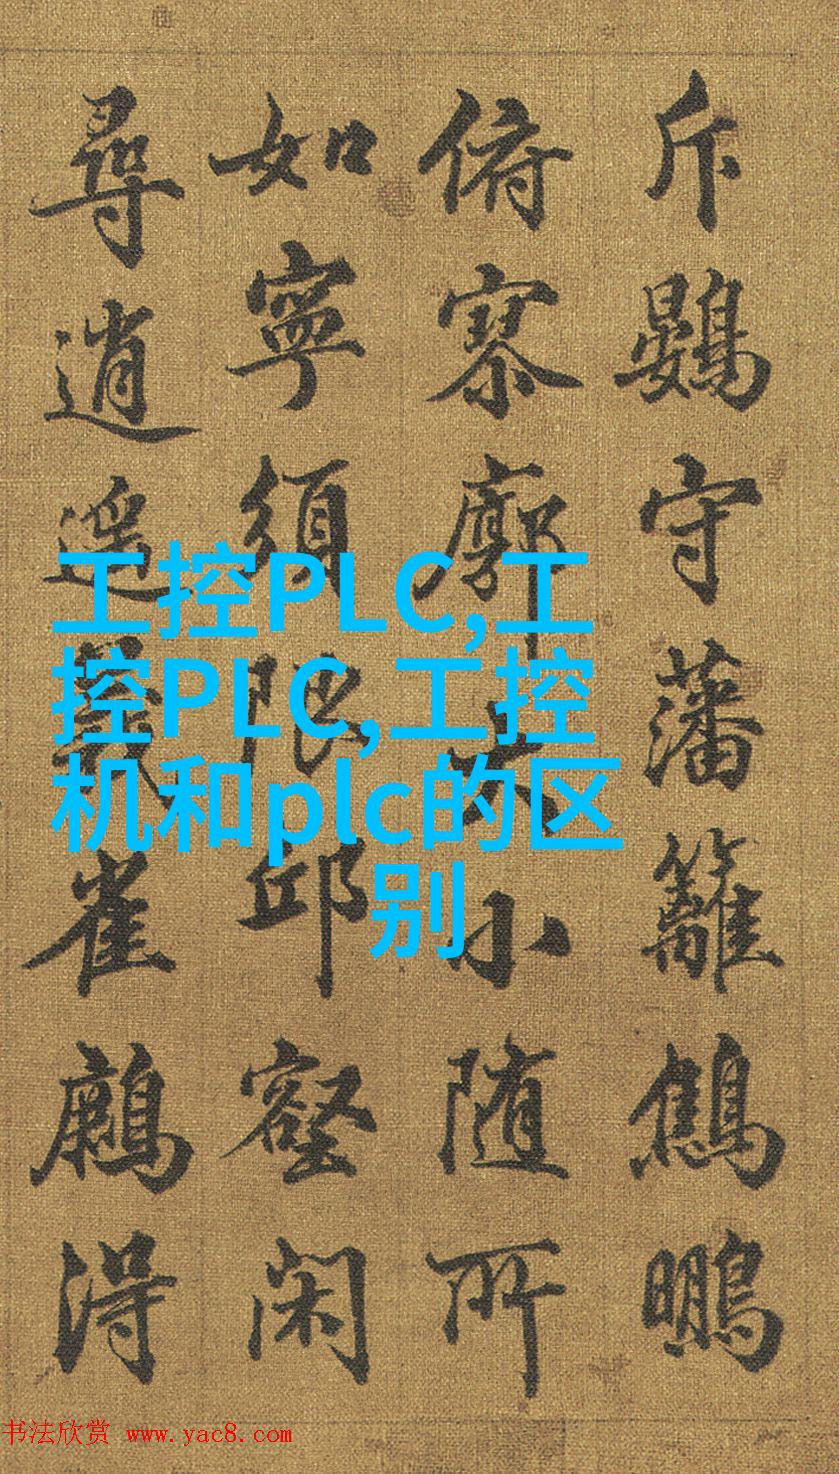 斥鷃守藩籬鷦鵬
俯寥廓大小随所
如寧須限邱壑闲
尋逍遥義雀得
工控PLC,工
控PLC,工控
机和plc的区
别
书法欣赏 www.yac8.com